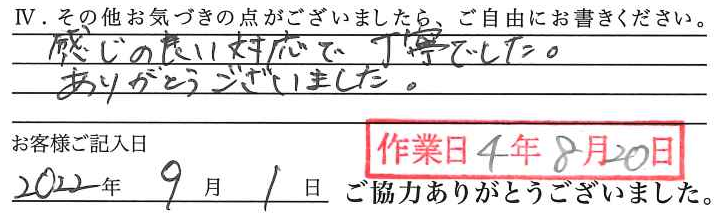 Ⅳ．その他お気づきの点がございましたら、ご自由にお書きください。
感じの良い対応で、丁寧でした。
ありがとうございました。
お客様ご記入日
作業日4年8月20日
2022年9月1日 ご協力ありがとうございました。